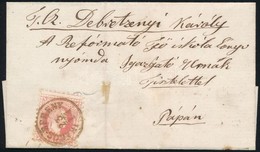 T. Cz. Debretzenyi Károly
A Reformáto Fő iskola könyv
nyomda Igazgató Urnak
Tisztelettel
Pápán